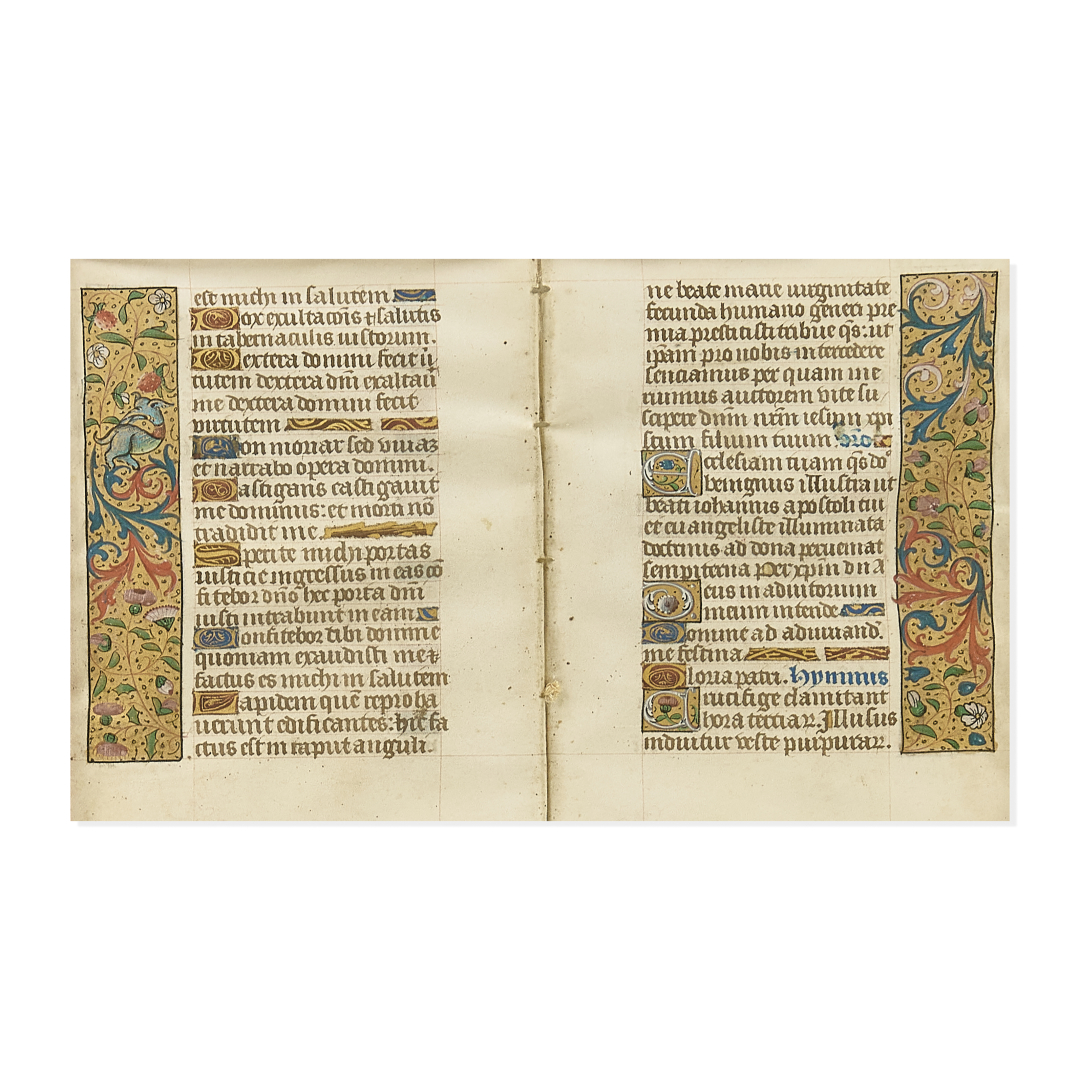 est michi in salutem
Vox exultacōis ⁊ salutis
in tabernaculis iustorum.
Dextera domini fecit ūi
tutem dextera dn̄i exaltaū
me dextera domini fecit
virtutem
Non moriar sed viuaꝫ
et narrabo opera domini.
Castigans castigauit
me dominus: et morti nō
tradidit me.
Aperite michi portas
iusticie ingressus in eas cō
fitebor dn̄o hec porta dn̄i
iusti intrabunt in eam
Confitebor tibi domine
quoniam exaudisti me ⁊
factus es michi in salutem
Lapidem quē reproba
uerunt edificantes: hic fa
ctus est in caput anguli.
ne beate marie uirginitate
fecunda humano generi pre
mia prestitisti tribue qs̄: ut
ipam pro nobis intercedere
senciamus per quam me
ruimus auctorem vite su
scipere dn̄m nr̄m iesum xp̄
stum filium tuum Oro
Ecclesiam tuam qs̄ do
benignus illustra ut
beati iohannis apostoli tui
et euangeliste illuminata
doctrinis ad dona perueniat
sempiterna Per xp̄m dn̄
Deus in adiutorium
meum intende
Domine ad adiuuand
me festina
Gloria patri. Hympnus
Crucifige clamitant
hora terciaꝝ. Illusus
induitur veste purpuraꝝ.